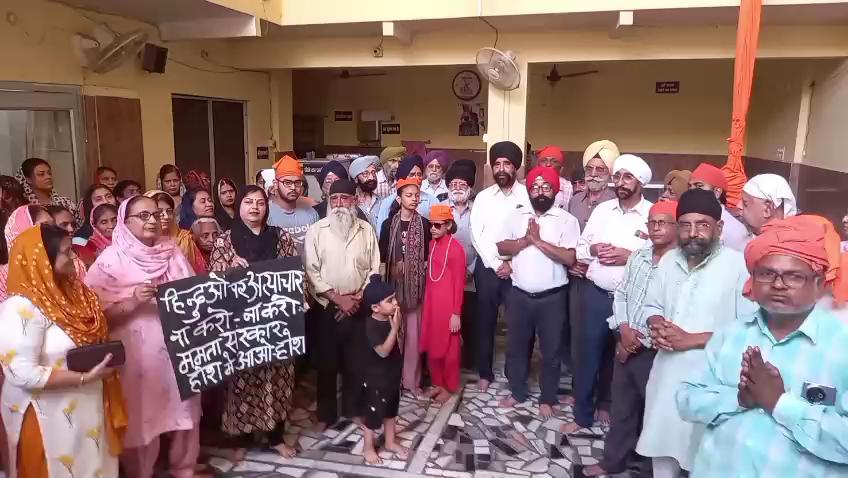 हिन्दुओ पर अत्याचार
ना करो-ना करो
ममता सरकार
होश मे आओ-होश